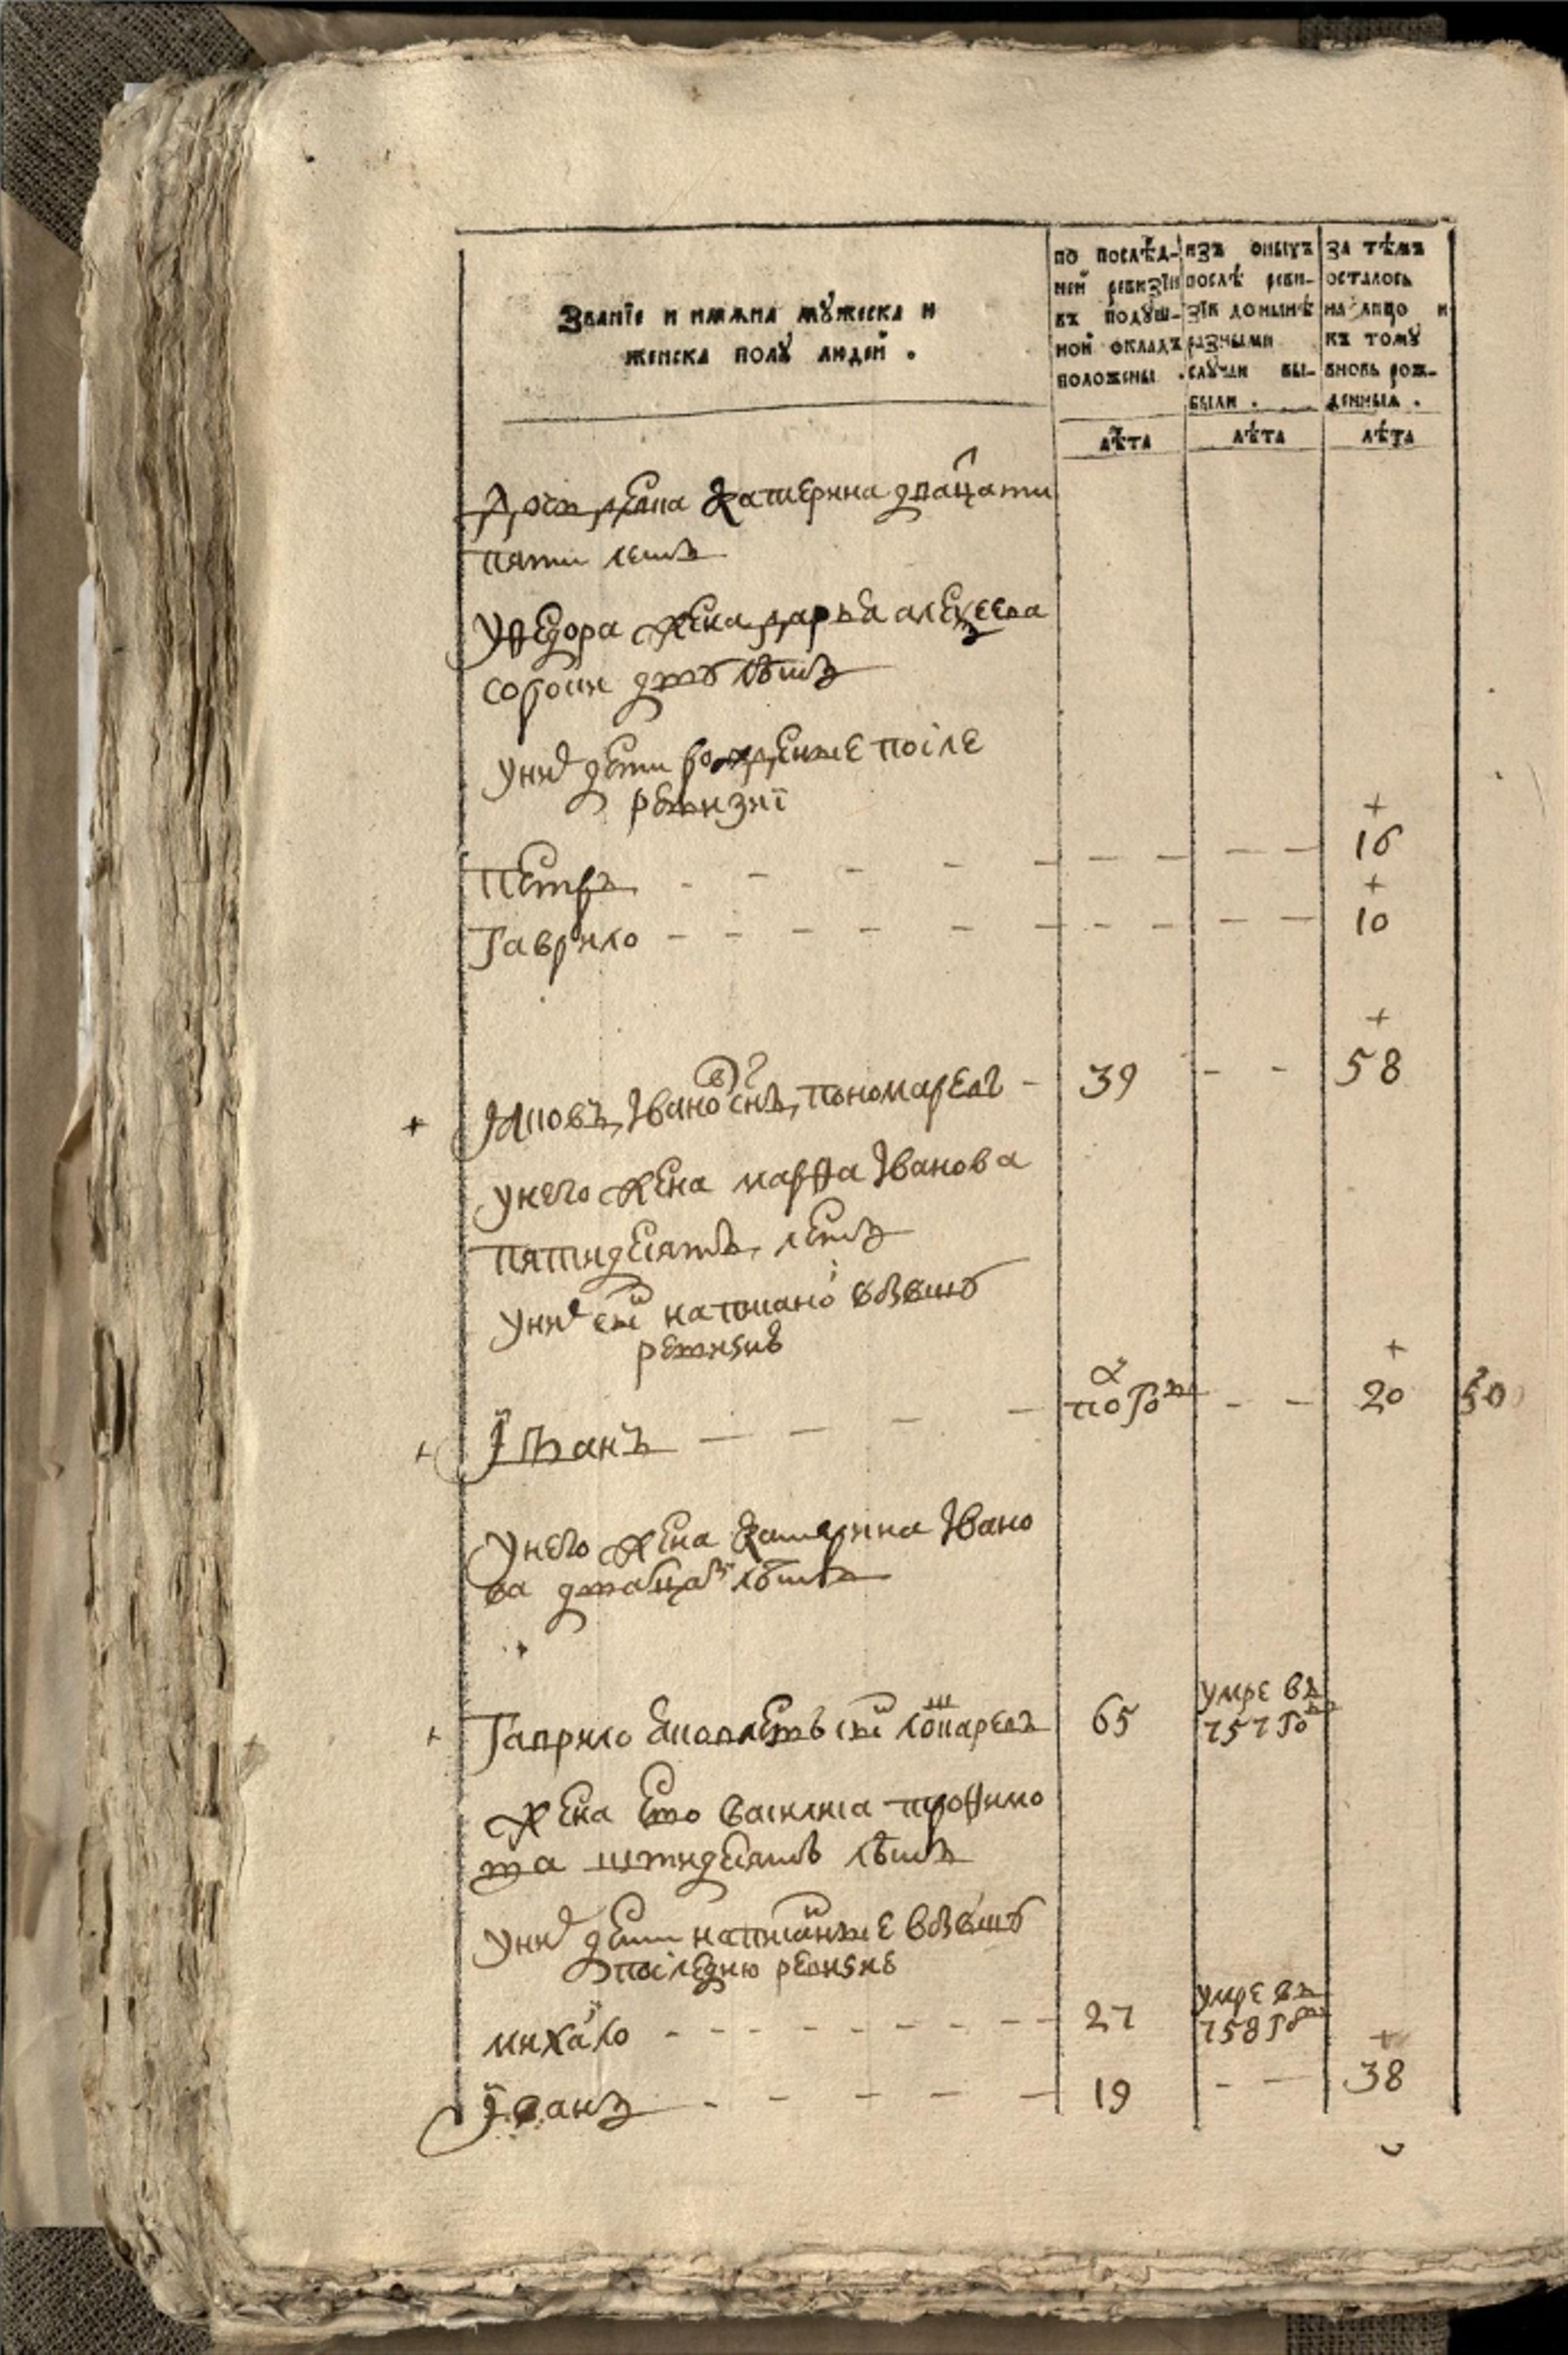 Званїе и имяна мꙋжеска и
женска полꙋ людей .
по послѣд-
ней ревизїи
въ подꙋш-
ной окладъ
положены .
изъ оныхъ
послѣ реви-
зїи донынѣ
разными
слꙋчаи вы-
были .
за тѣмъ
осталось
на лицо и
къ томꙋ
вновь рож-
денныя .
лѣта
лѣта
лѣта
жена катерина двацати
пяти летъ
уфедора жена дарья алексеева
сорокъ двѣ лѣтъ
уних дети рожденые после
ревизиї
Петръ - - - - 16
Гаврило - - - - 10
Яковъ Иванов снъ пономаревъ - 39 - - 58
унего жена марфа Иванова
пятидесятъ летъ
уних снъ написанной вбывшую
ревизию
Їванъ - - - полгода - - 20
унего жена катерина Ивано
ва двацать лѣтъ
Гаврило снъ 65 умре въ
757 году
жена ево василиса трофимо
ва шtидесятъ лѣтъ
уних дети написанные вбывшую
последнюю ревизию
михайло - - - - 27 умре въ
758 году
Їванъ - - - - 19 - - 38